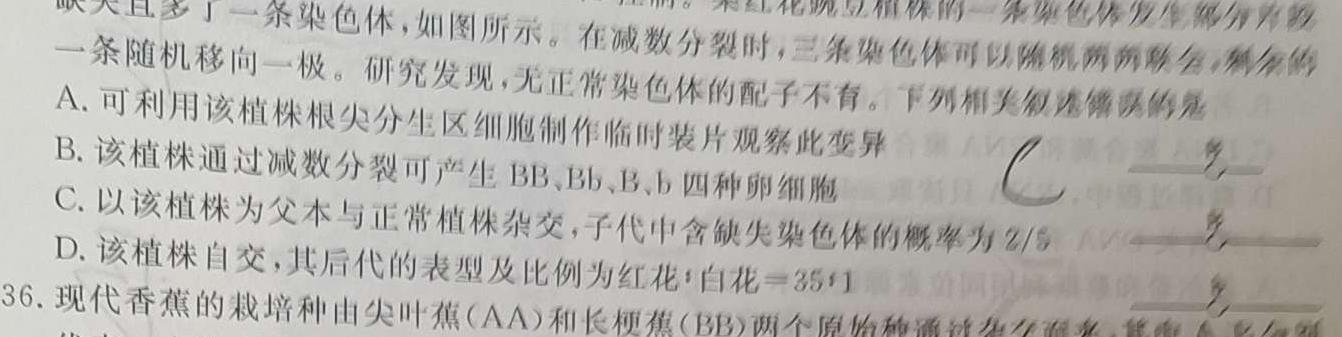 且多了一条染色体,如图所示。在减数分裂时,三条染色体可以随机两两联会,剩余的
一条随机移向一极。研究发现,无正常染色体的配子不育。下列相关叙述错误的是
A. 可利用该植株根尖分生区细胞制作临时装片观察此变异
B. 该植株通过减数分裂可产生 BB、Bb、B、b 四种卵细胞
C
C. 以该植株为父本与正常植株杂交,子代中含缺失染色体的概率为 2/5
D. 该植株自交,其后代的表型及比例为红花:白花=35:1
36. 现代香蕉的栽培种由尖叶蕉(AA)和长梗蕉(BB)两个原始种通过杂交而来